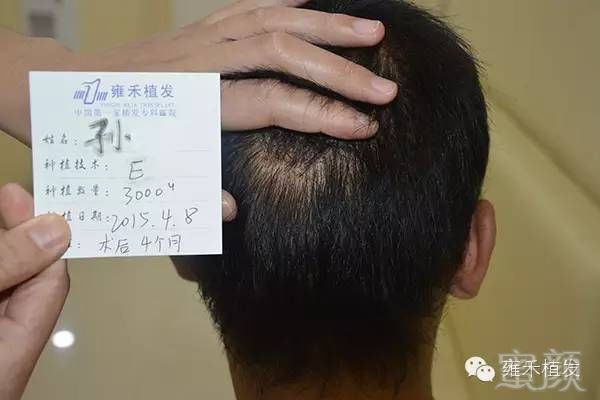 雍禾植发
YONGHE HAIR TRANSPLANT
中国第一家植发专科医院
姓名：孙
种植技术：E
种植数量：3000u
植日期：2015.4.8
：术后4个月
雍禾植发
蜜颜